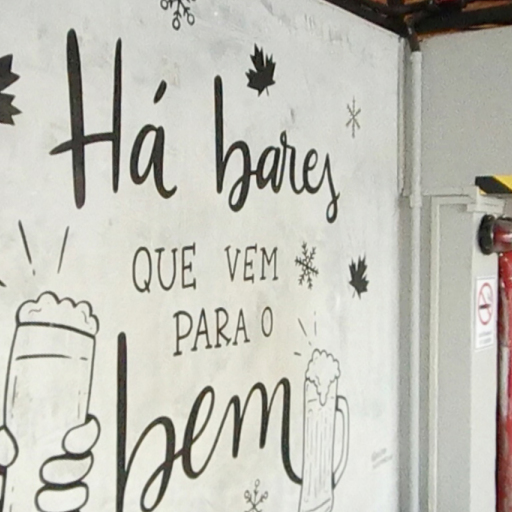 Há bares
QUE VEM
PARA O
bem